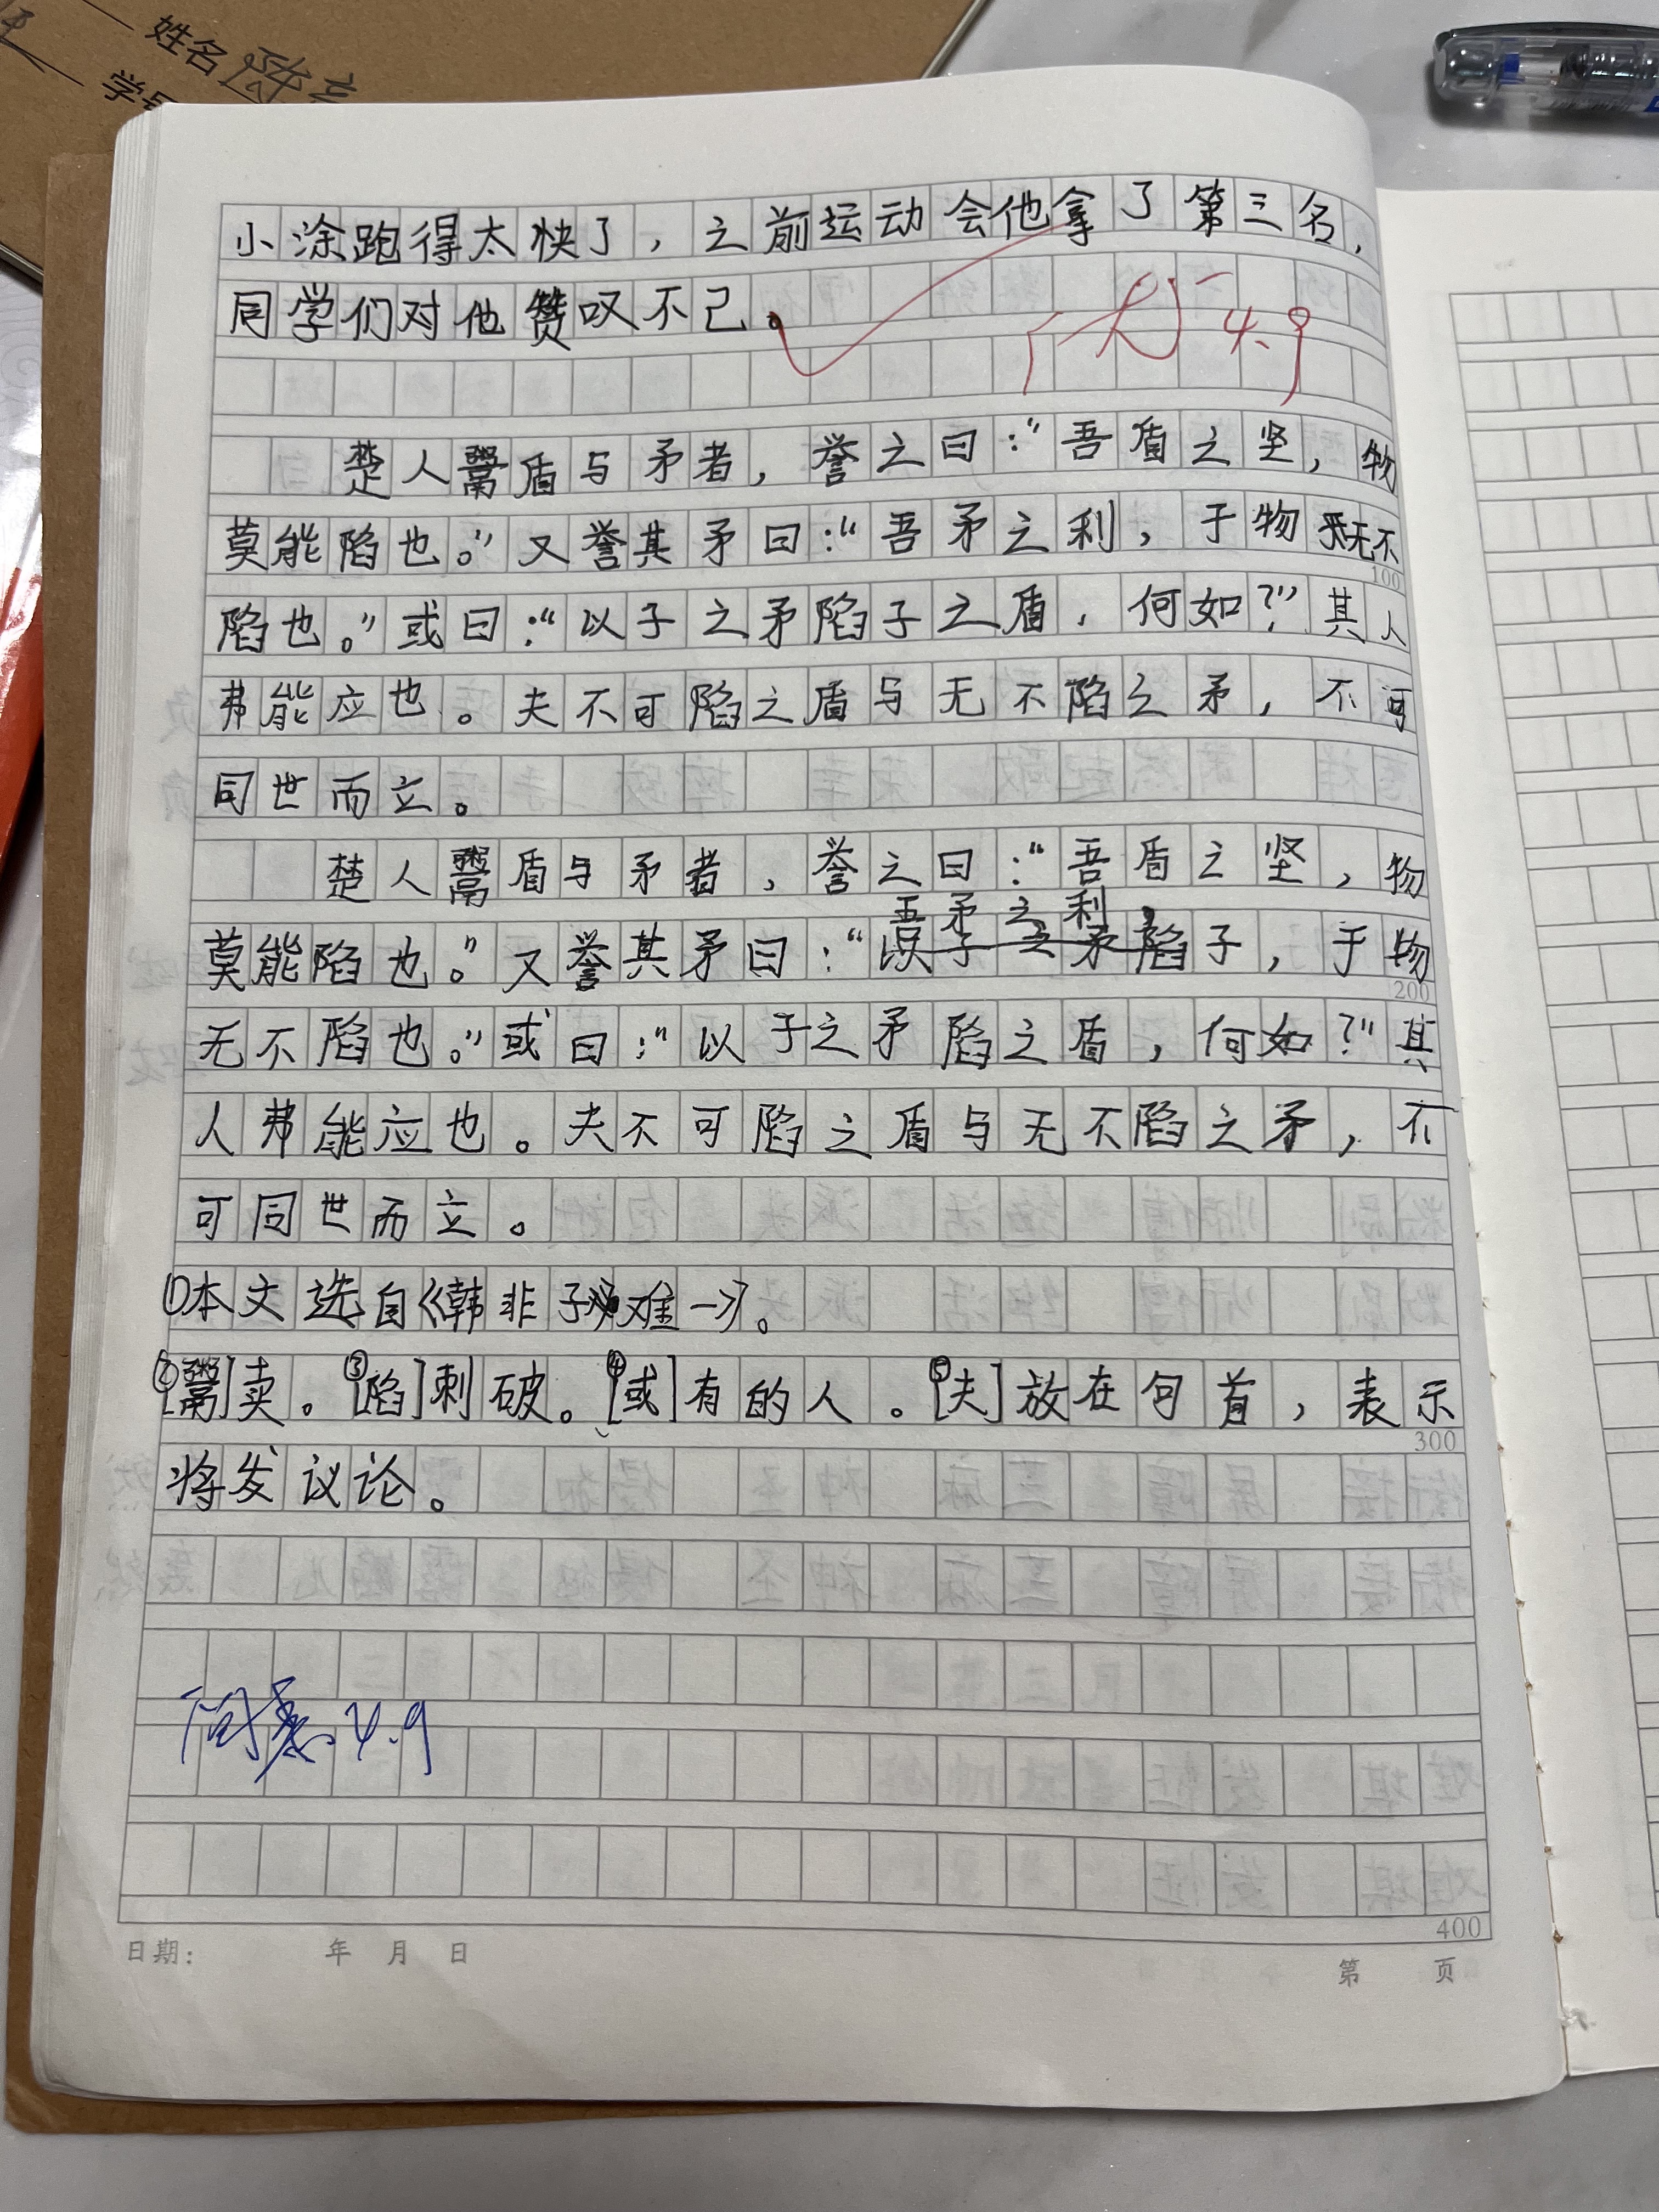 姓名
学号
小涂跑得太快了，之前运动会他拿了第三名，
同学们对他赞叹不已。
优 4.9
楚人鬻盾与矛者，誉之曰：“吾盾之坚，物
莫能陷也。”又誉其矛曰：“吾矛之利，于物无不
100
陷也。”或曰：“以子之矛陷子之盾，何如？”其人
弗能应也。夫不可陷之盾与无不陷之矛，不可
同世而立。
楚人鬻盾与矛者，誉之曰：“吾盾之坚，物
吾矛之利，
莫能陷也。”又誉其矛曰：“以子之矛陷子，于物
200
无不陷也。”或曰：“以子之矛陷之盾，何如？”其
人弗能应也。夫不可陷之盾与无不陷之矛，不
可同世而立。
①本文选自《韩非子·难一》。
②[鬻]卖。③[陷]刺破。④[或]有的人。⑤[夫]放在句首，表示
300
将发议论。
4.9
400
日期： 年 月 日
第 页